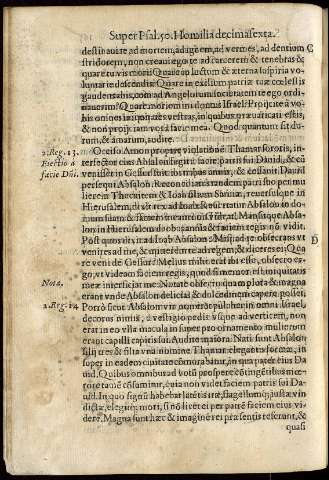 Super Psal. 50. Homilia decimasexta.
destinauit te ad mortem, ad ignem, ad vermes, ad dentium C
stridorem, non creaui ego te ad carcerem & tenebras &
quare tu vis mori? Quare in luctum & æterna suspiria vo
luntarie descendis? Quare in exilium patriæ tuæ cœlestis
gaudens abis, cum ad Angelorum societatem te ego ordi-
nauerim? Quare moriemini domus Israel? Projicite à vo-
bis omnes iniquitates vestras, in quibus præuaricati estis,
& non projiciam vos à facie mea. Quod quantum sit du-
rum, & amarum, audite.
2. Reg. 13.
Eiectio à
facie Dñi.
Occiso Amon propter violationẽ Thamar sororis, in-
terfector eius Absalon fugit à facie patris sui Dauid, & cũ
venisset in Gessur
persequi Absalon. Reconciliatus tandem patri suo per mu
lierem Thecuitem & Ioab filium Saruiæ, reuersusque in
Hierusalem,
Mansitque Absa-
lon in Hierusalem duobus annis & faciem regis nõ vidit.
Post quos dixit ad Ioab Absalon: D
venires ad me, & mitterem te ad regem, & diceres ei: Qua
re veni de Gessur? Melius mihi erat ibi esse, obsecro er-
go, vt videam faciem regis, quod si memor est iniquitatis
meæ interficiat me.
Nota.
Notate obsecro quam plora & magna
erant vnde Absalon delicias & dulcedinem capere posset.
2. Reg. 14
Porrò sicut Absalon vir non erat pulcher in omni Israel,
decorus nimis, à vestigio pedis vsque ad verticem, non
erat in eo vlla macula, insuper pro ornamento mulierum
erant capilli capitis sui. Audite maiora. Nati sunt Absalon
filij tres & filia vna nomine Thamar elegantis formæ, in
super in eadem ciuitate cõmorabatur, in qua pater eius Da
uid. Quibus omnibus ad vota prospere cõtingẽtibus mœ
rore tamẽ cõsummitur, quia non videt faciem patris sui Da-
uid. In quo signũ habebat latentis iræ, flagellumq; iustæ vin
dictæ, elegitq; mori, si nõ liceret per patrẽ faciem eius vi-
dere. Magna sunt hæc & imaginẽ rei præsentis referunt, &
quasi